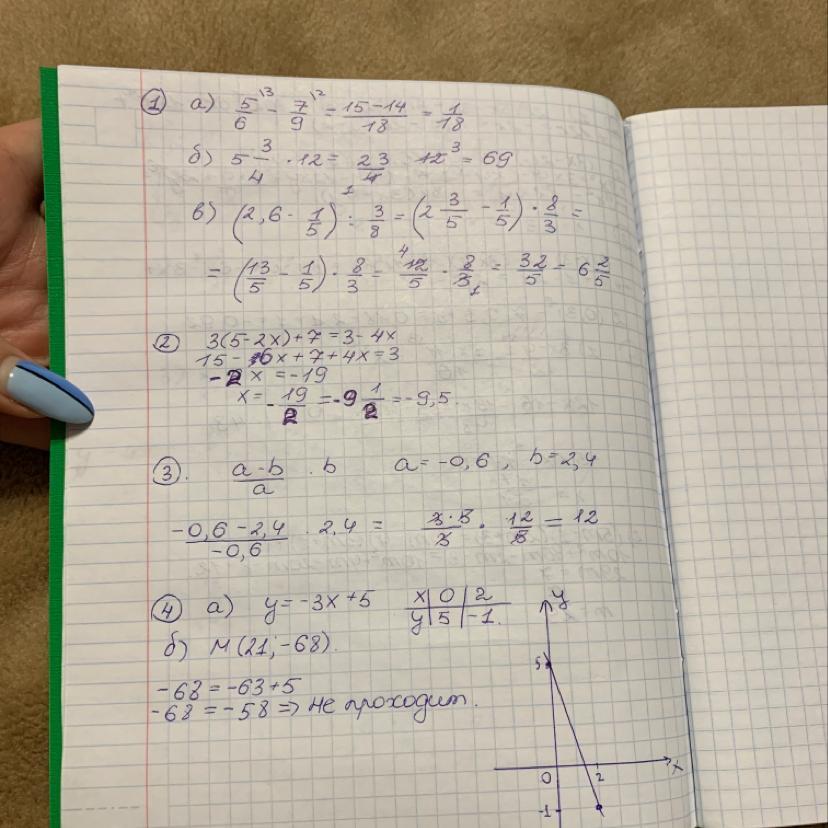 ① а) 5/6 \3 - 7/9 \2 = 15-14/18 = 1/18
б) 5 3/4 · 12 = 23/4 12 3 = 69
1
в) (2,6 - 1/5) : 3/8 = (2 3/5 - 1/5) · 8/3 =
= (13/5 - 1/5) · 8/3 = 4 12/5 · 8/3 1 = 32/5 = 6 2/5
② 3(5-2x)+7=3-4x
15-6x+7+4x=3
-2x = -19
x = -19/2 = -9 1/2 = -9,5.
③. a-b/a · b a=-0,6, b=2,4
-0,6-2,4/-0,6 · 2,4 = 3·5/3 · 12/5 = 12
④ а) y=-3x+5 x 0 2 y
y 5 -1.
б) M(21;-68).
5
-68=-63+5
-68=-58 => не проходит.
0 2 x
-1